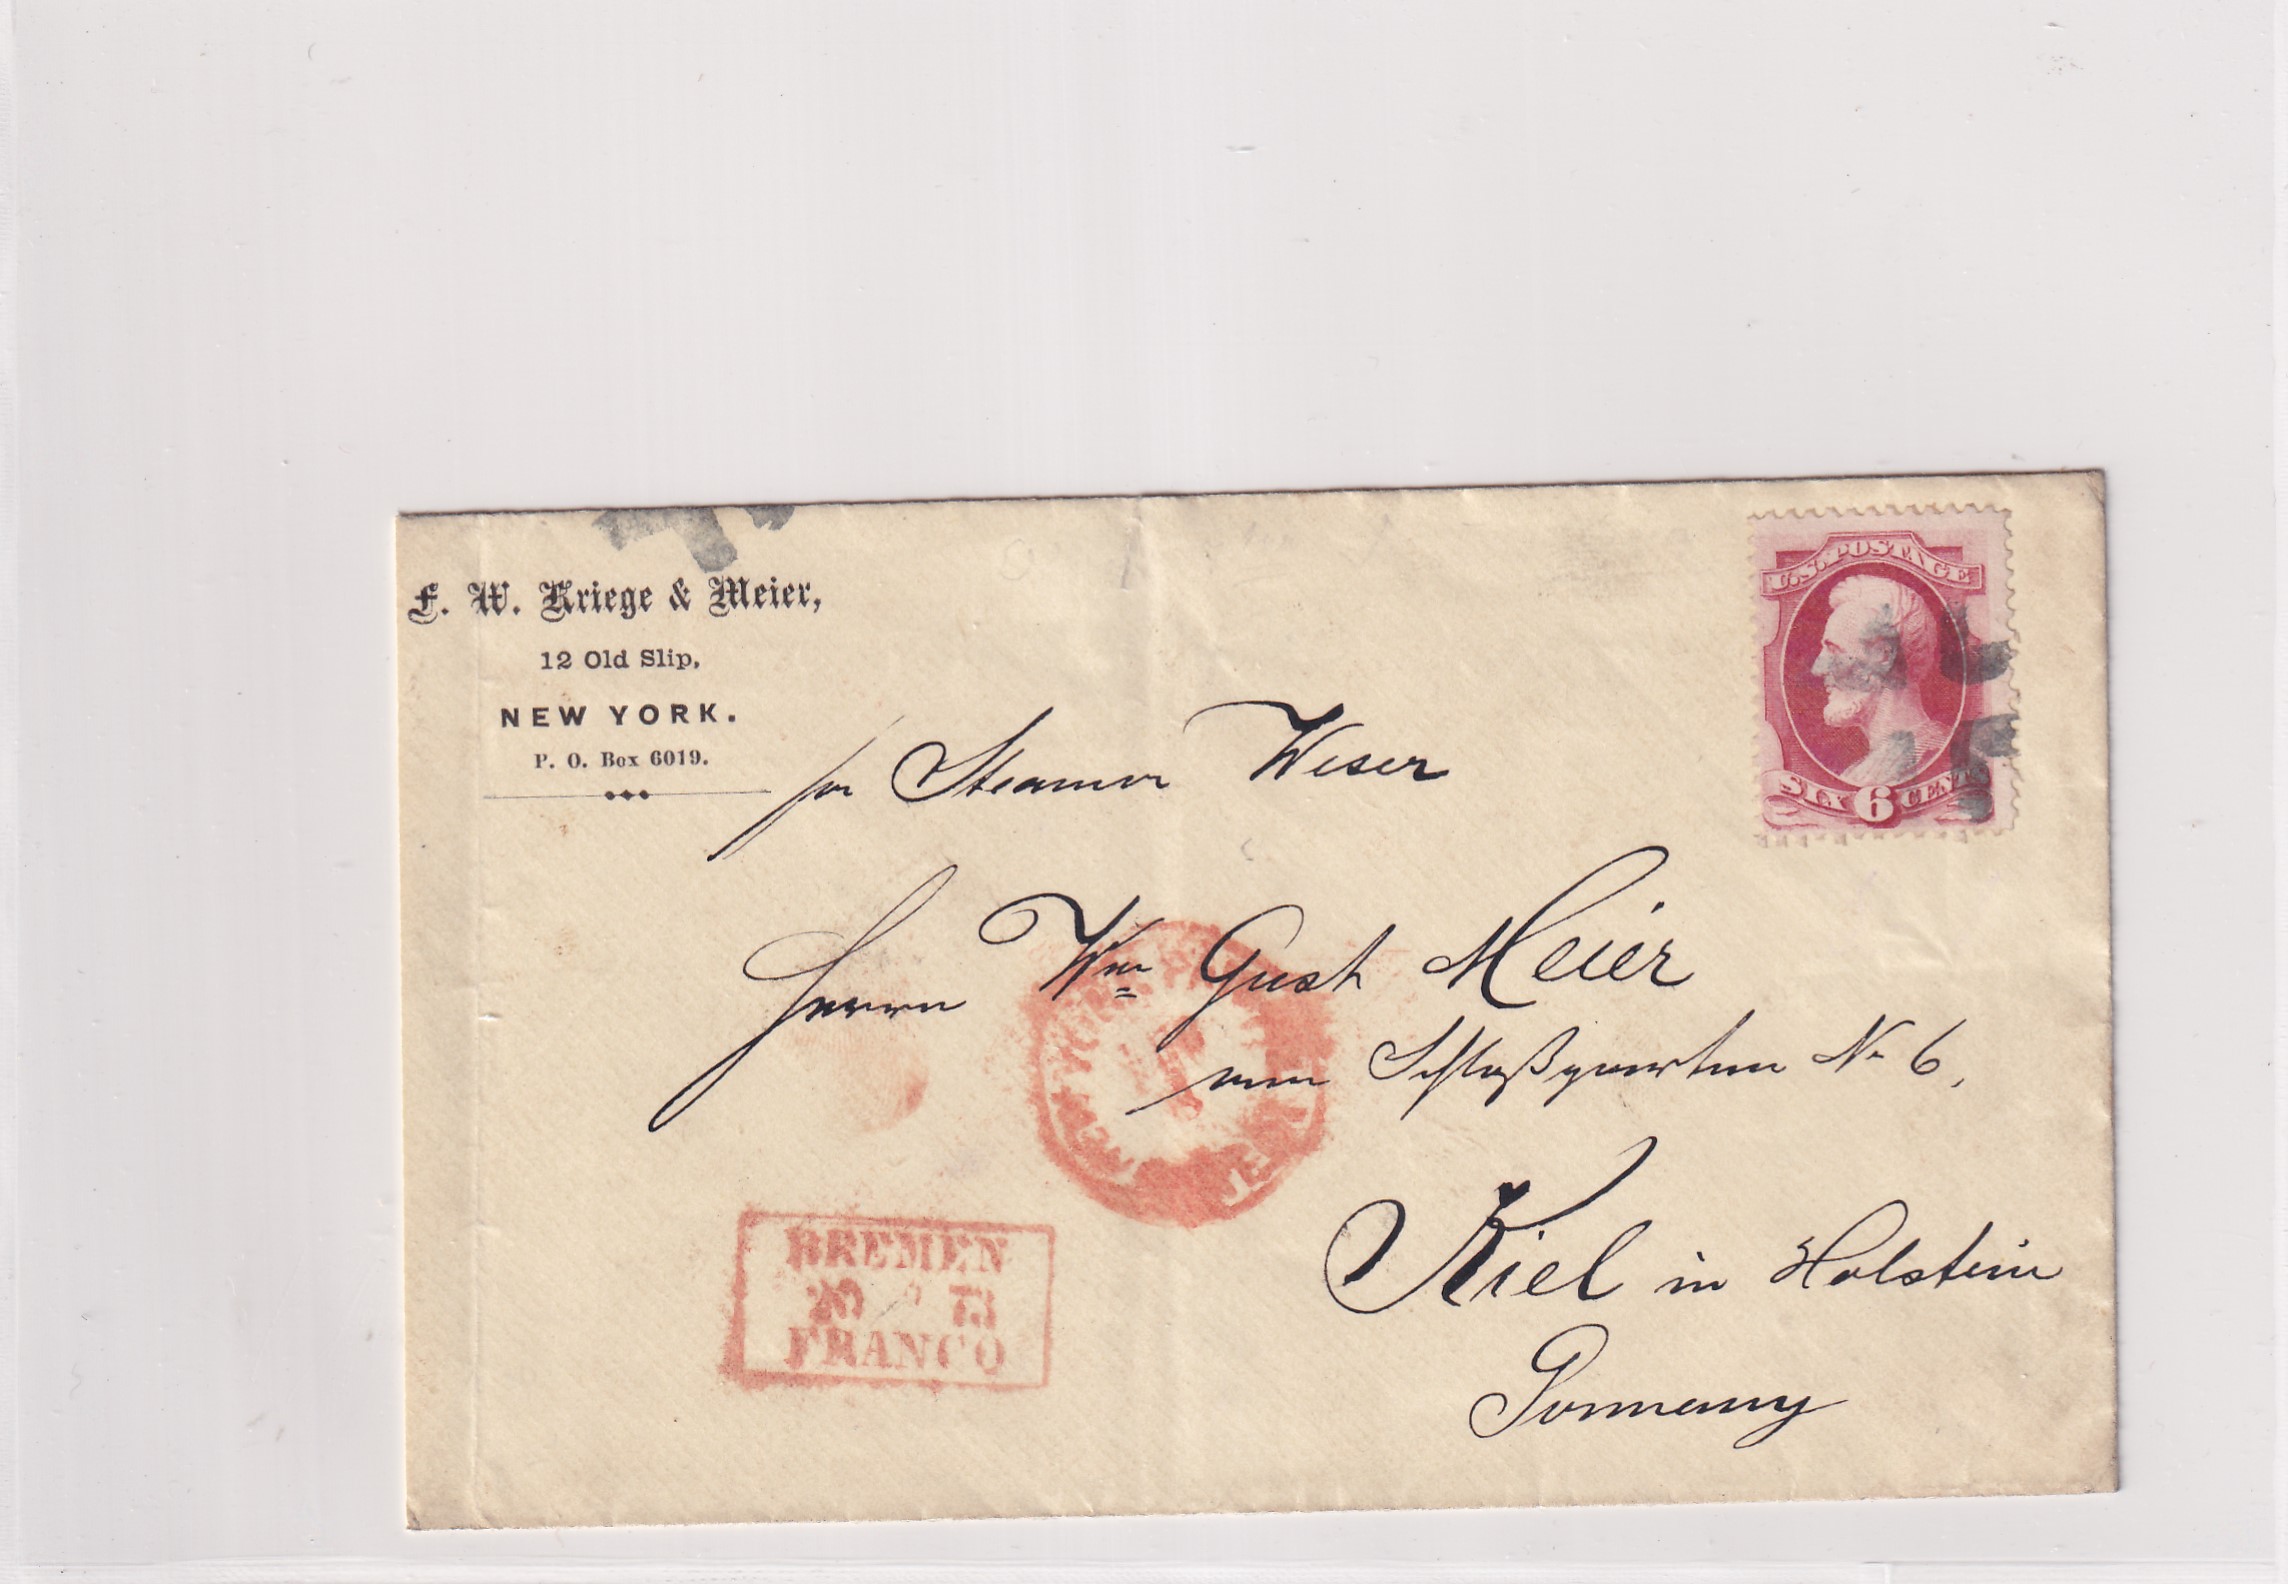 F. W. Kriege & Meier,
12 Old Slip,
NEW YORK.
P. O. Box 6019.
pr Steamer Weser
U.S. POSTAGE
SIX 6 CENTS
Herrn Wm Gust Meier
am Schloßgarten No 6,
Kiel in Holstein
Germany
NEW YORK
BREMEN
20 73
FRANCO